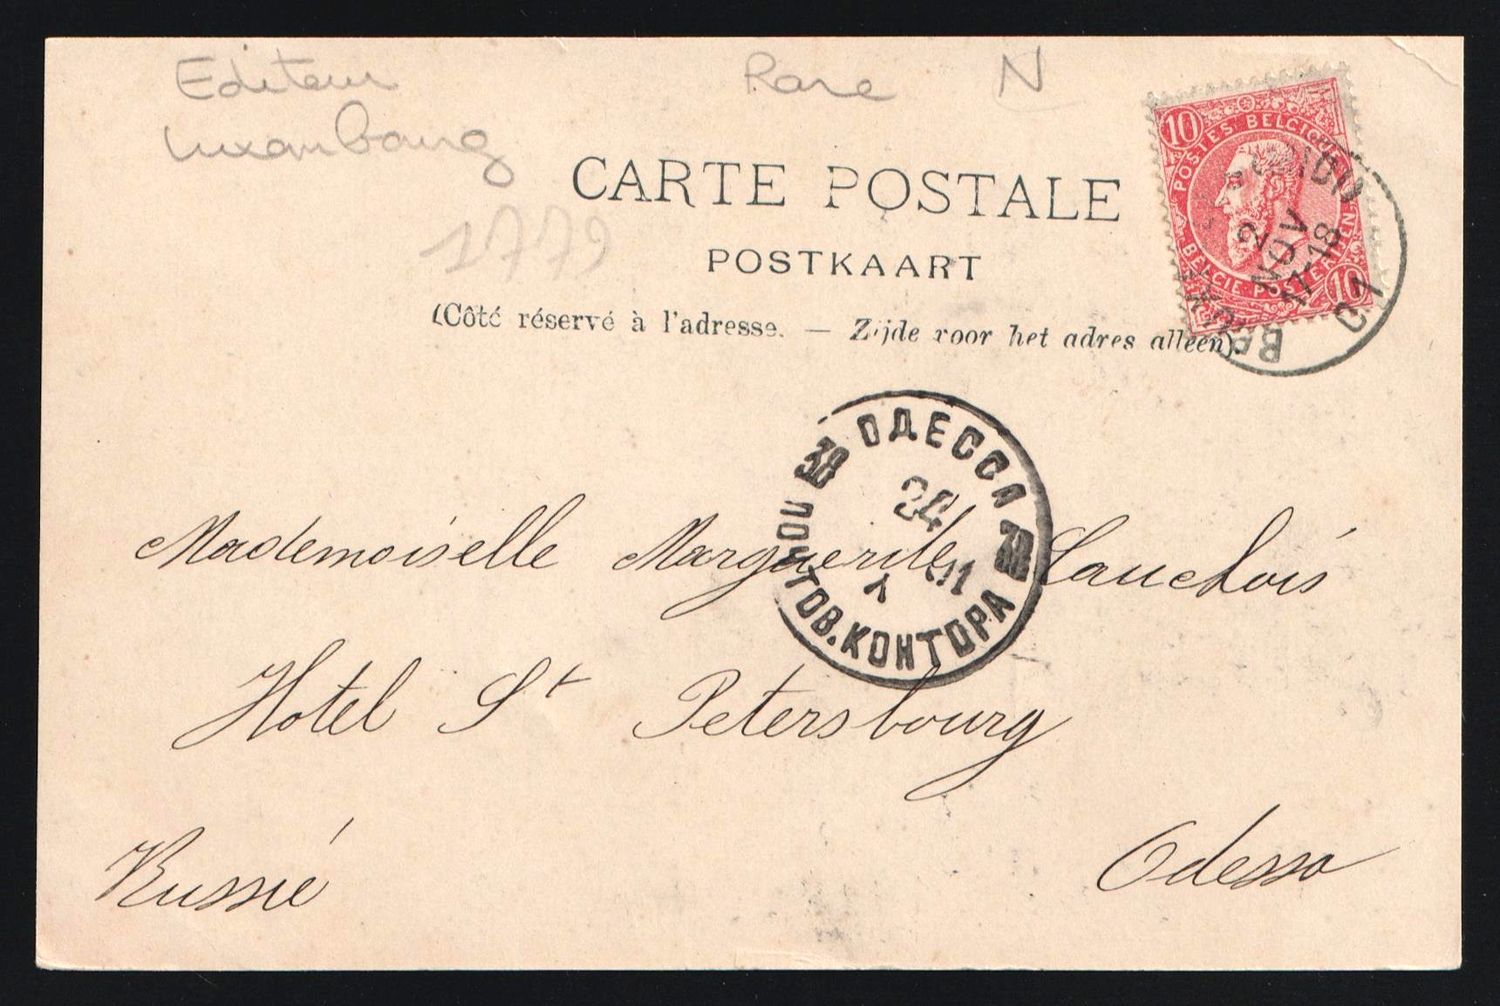 Editeur
Luxembourg
Rare N
1779
CARTE POSTALE
POSTKAART
(Côté réservé à l'adresse. — Zijde voor het adres alleen).
10
POSTES BELGIQUE
BELGIE POSTERIJEN
10
2
NOV
17-18
01
ОДЕССА
38 38
24
X 01
ПОЧТОВ. КОНТОРА
Mademoiselle Marguerite
Hotel St Petersbourg
Odessa
Russie